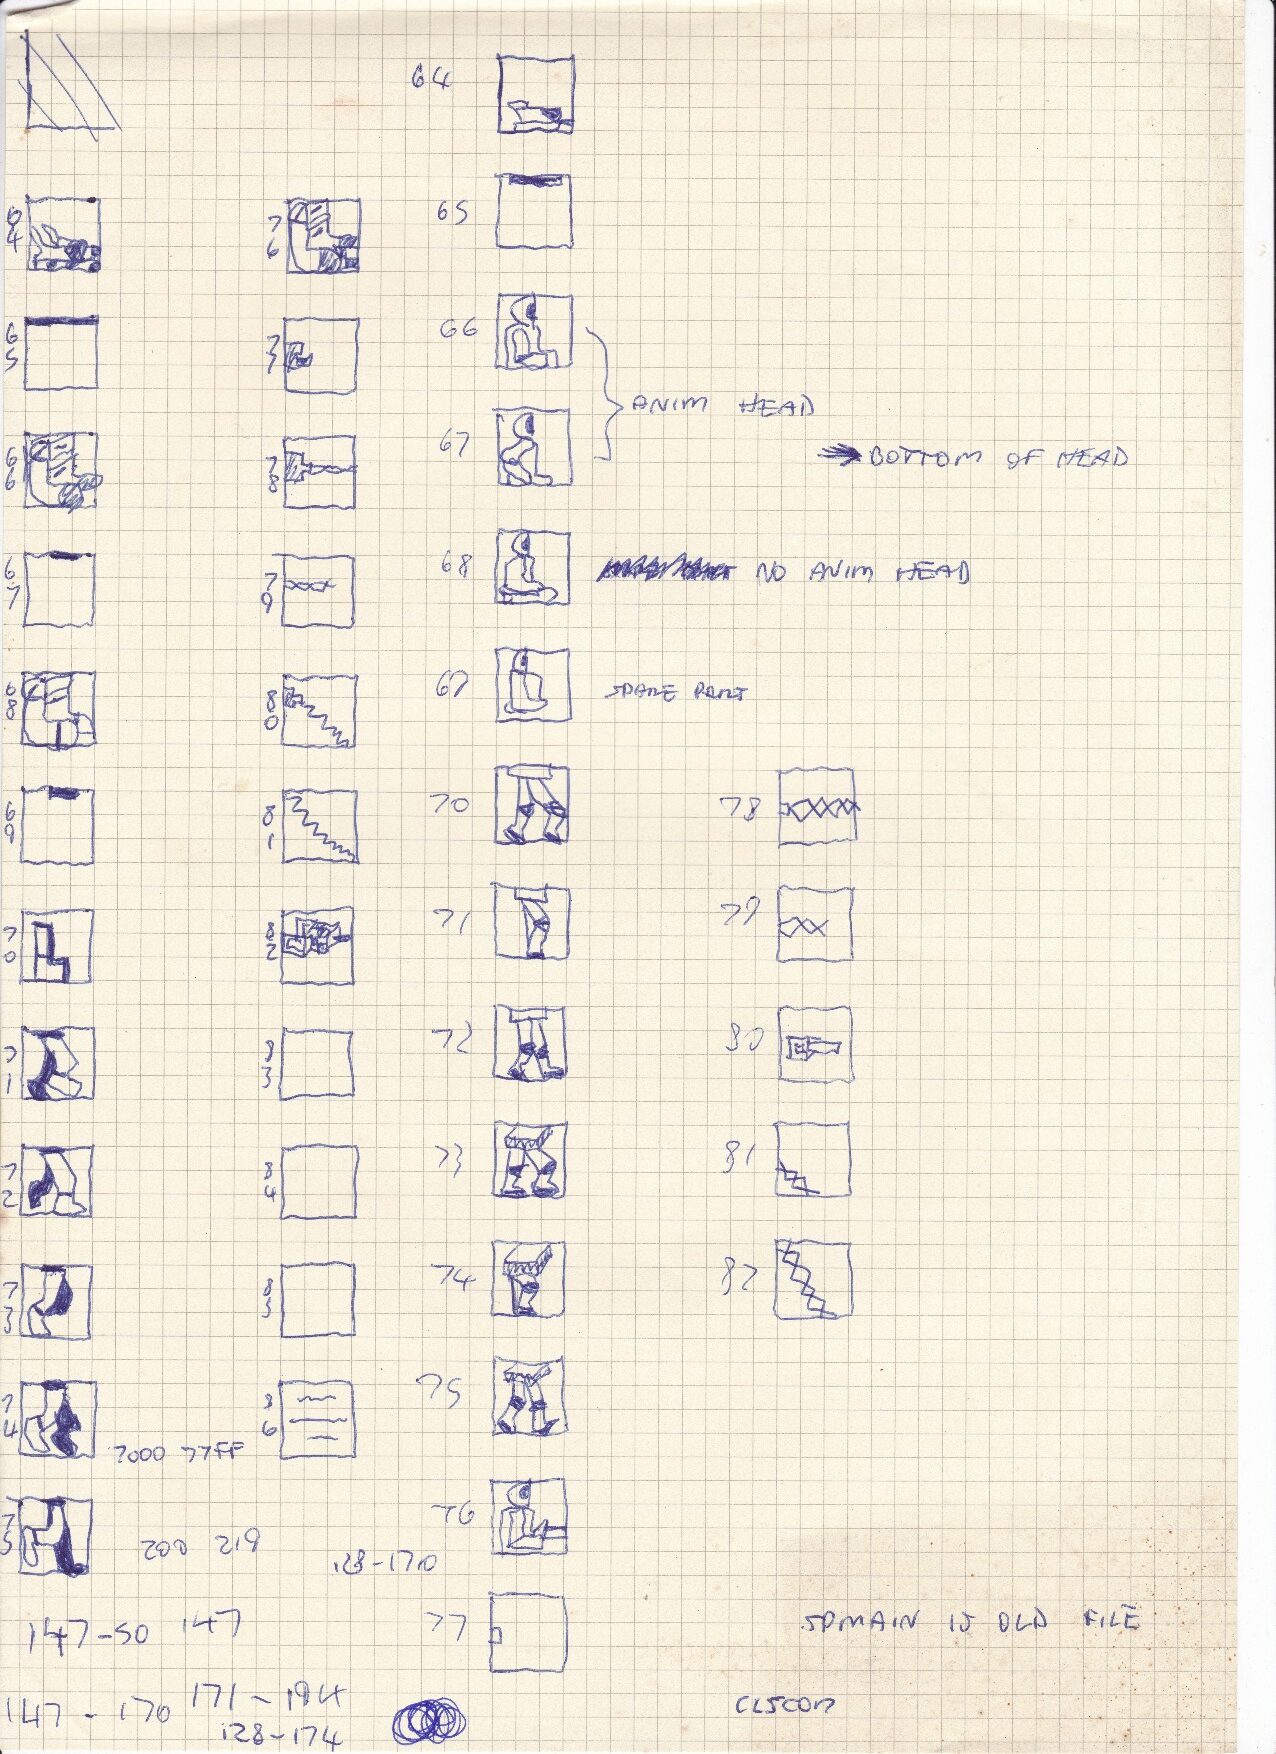 64
64
76
65
65
66
73
ANIM HEAD
66
78
67
BOTTOM OF HEAD
67
79
68
NO ANIM HEAD
68
80
67
SPARE PART
69
81
70
78
70
82
71
79
71
83
72
80
72
84
73
81
73
83
74
82
74
86
75
7000 77FF
75
200 219
76
128-170
147-50 147
77
SPMAIN IS OLD FILE
147 - 170
171 - 194
128-174
CLSCOM